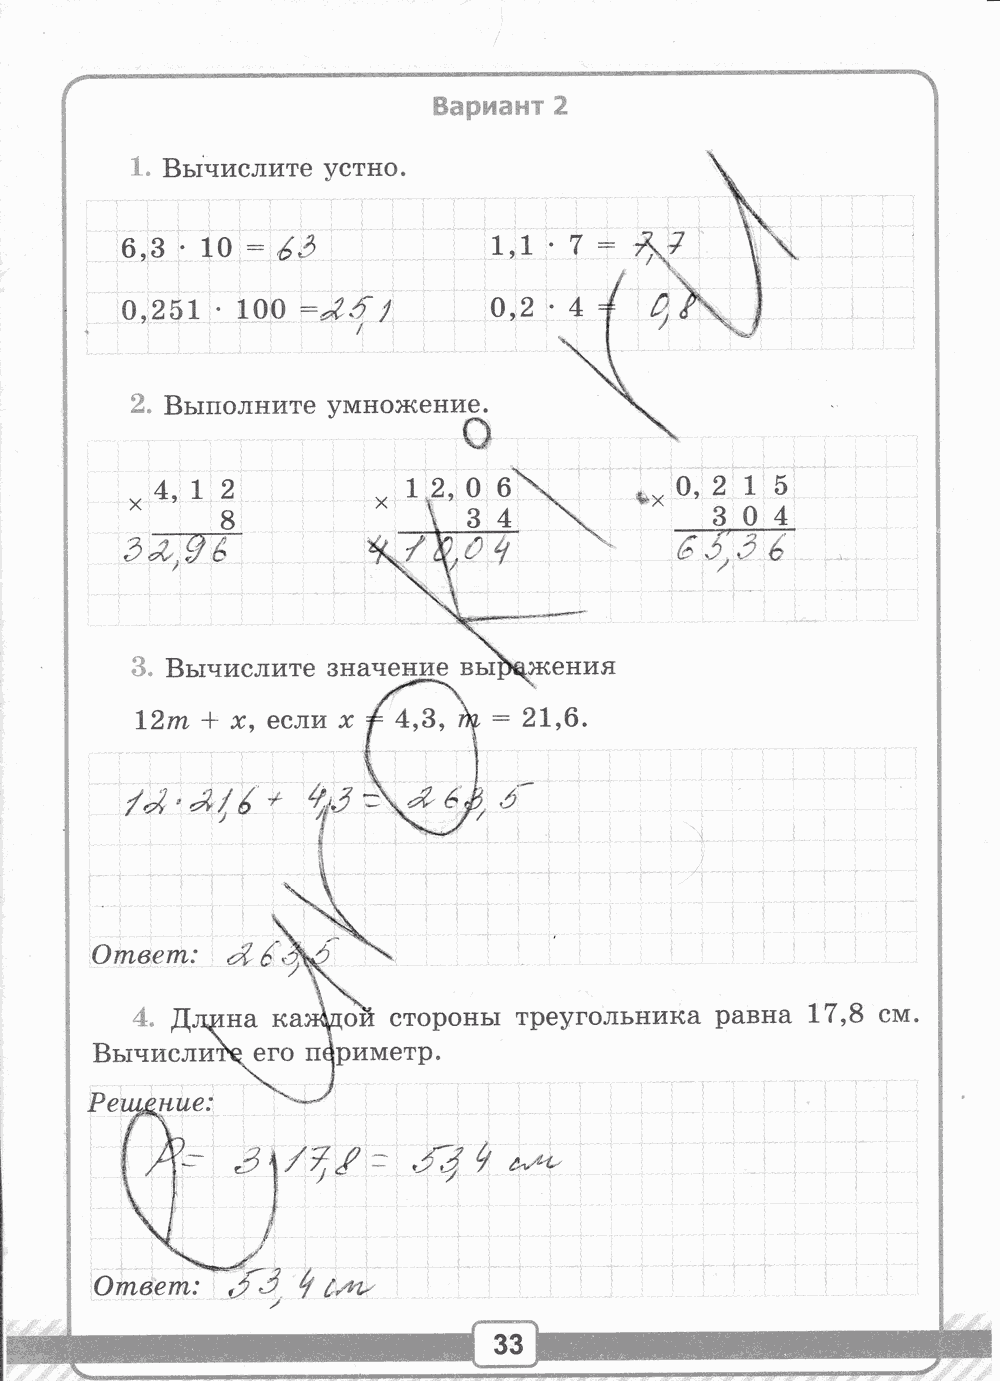 Вариант 2
1. Вычислите устно.
6,3 · 10 = 63
1,1 · 7 = 7,7
0,251 · 100 = 25,1
0,2 · 4 = 0,8
2. Выполните умножение.
× 4,12
8
32,96
× 12,06
34
410,04
× 0,215
304
65,36
3. Вычислите значение выражения
12m + x, если x = 4,3, m = 21,6.
12 · 21,6 + 4,3 = 263,5
Ответ: 263,5
4. Длина каждой стороны треугольника равна 17,8 см.
Вычислите его периметр.
Решение:
P = 3 · 17,8 = 53,4 см
Ответ: 53,4 см
33